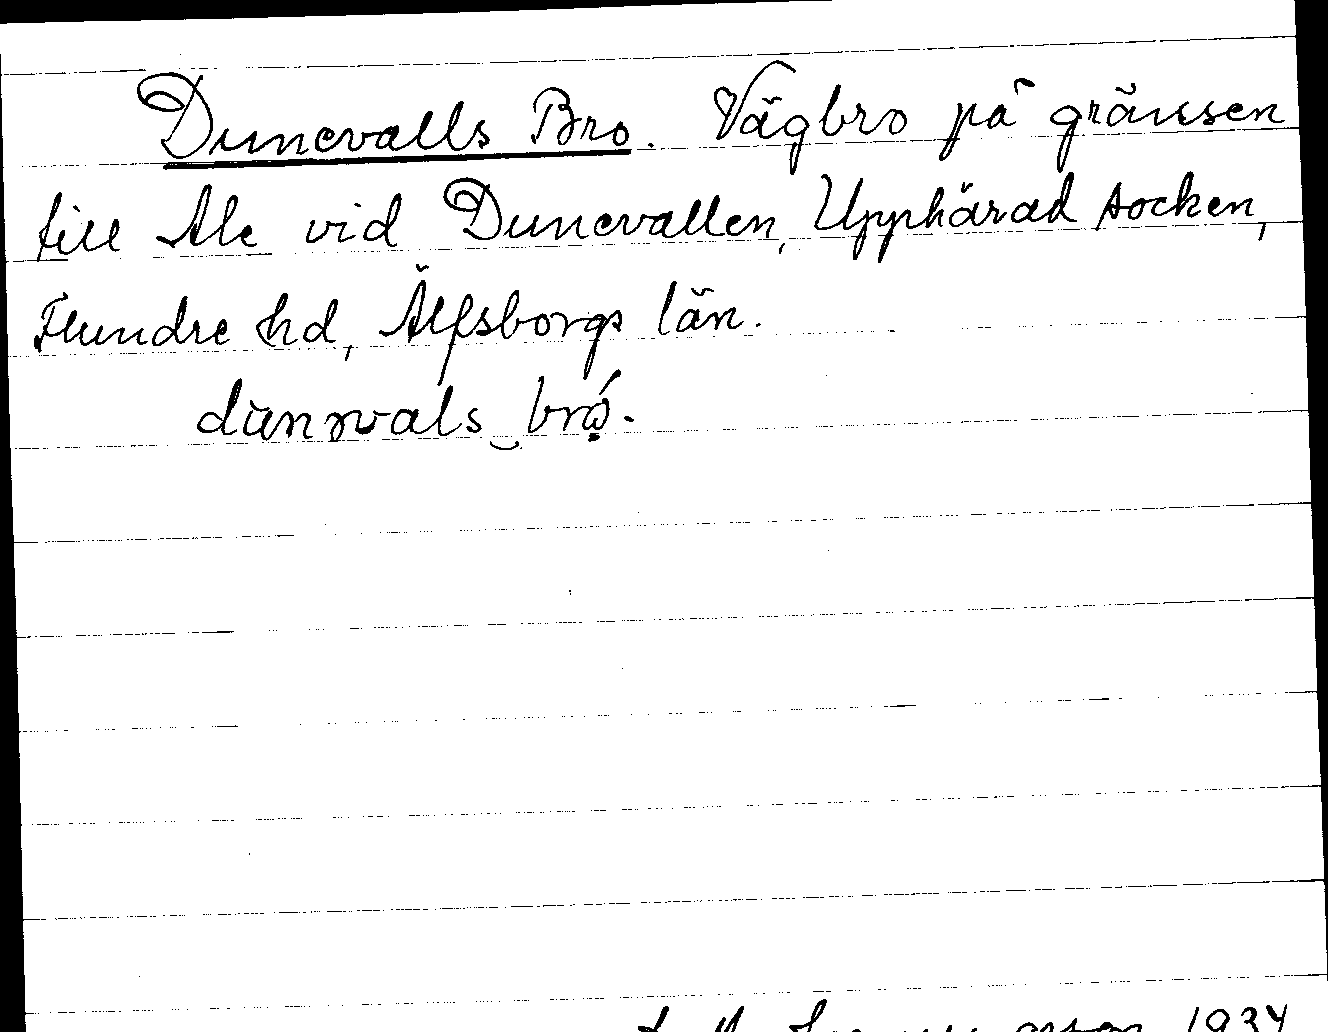 Dunevalls Bro. Vägbro på gränsen
till Ale vid Dunevallen, Upphärad socken,
Flundre hd, Älfsborgs län.
1934